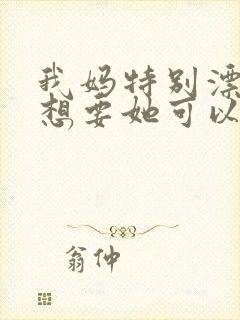 我妈特别漂
想要她可以
翁仲